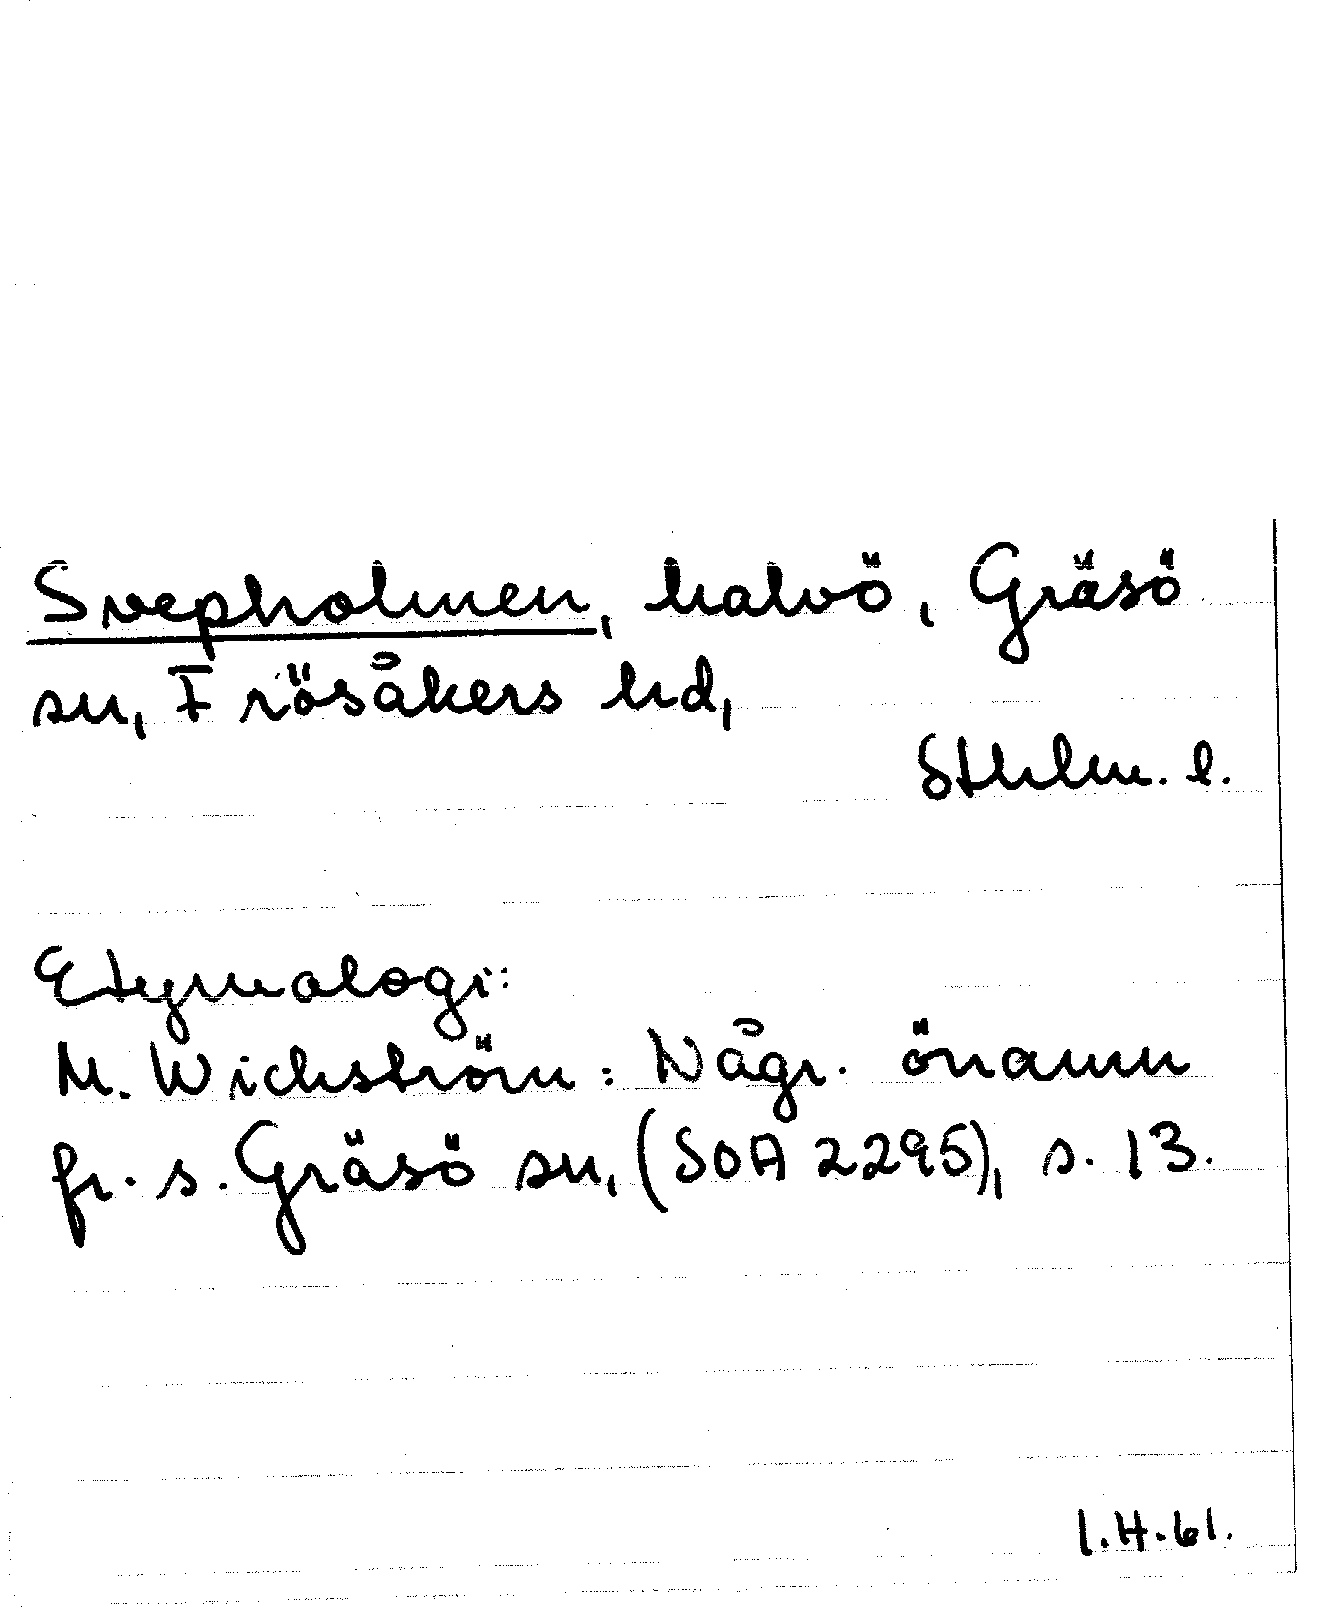 Svepholmen, halvö, Gräsö
sn, Frösåkers hd,
Sthlm. l.
Etymologi:
M. Wichström: Någr. önamn
fr. s. Gräsö sn, (SOA 2295), s. 13.
I.H.61.